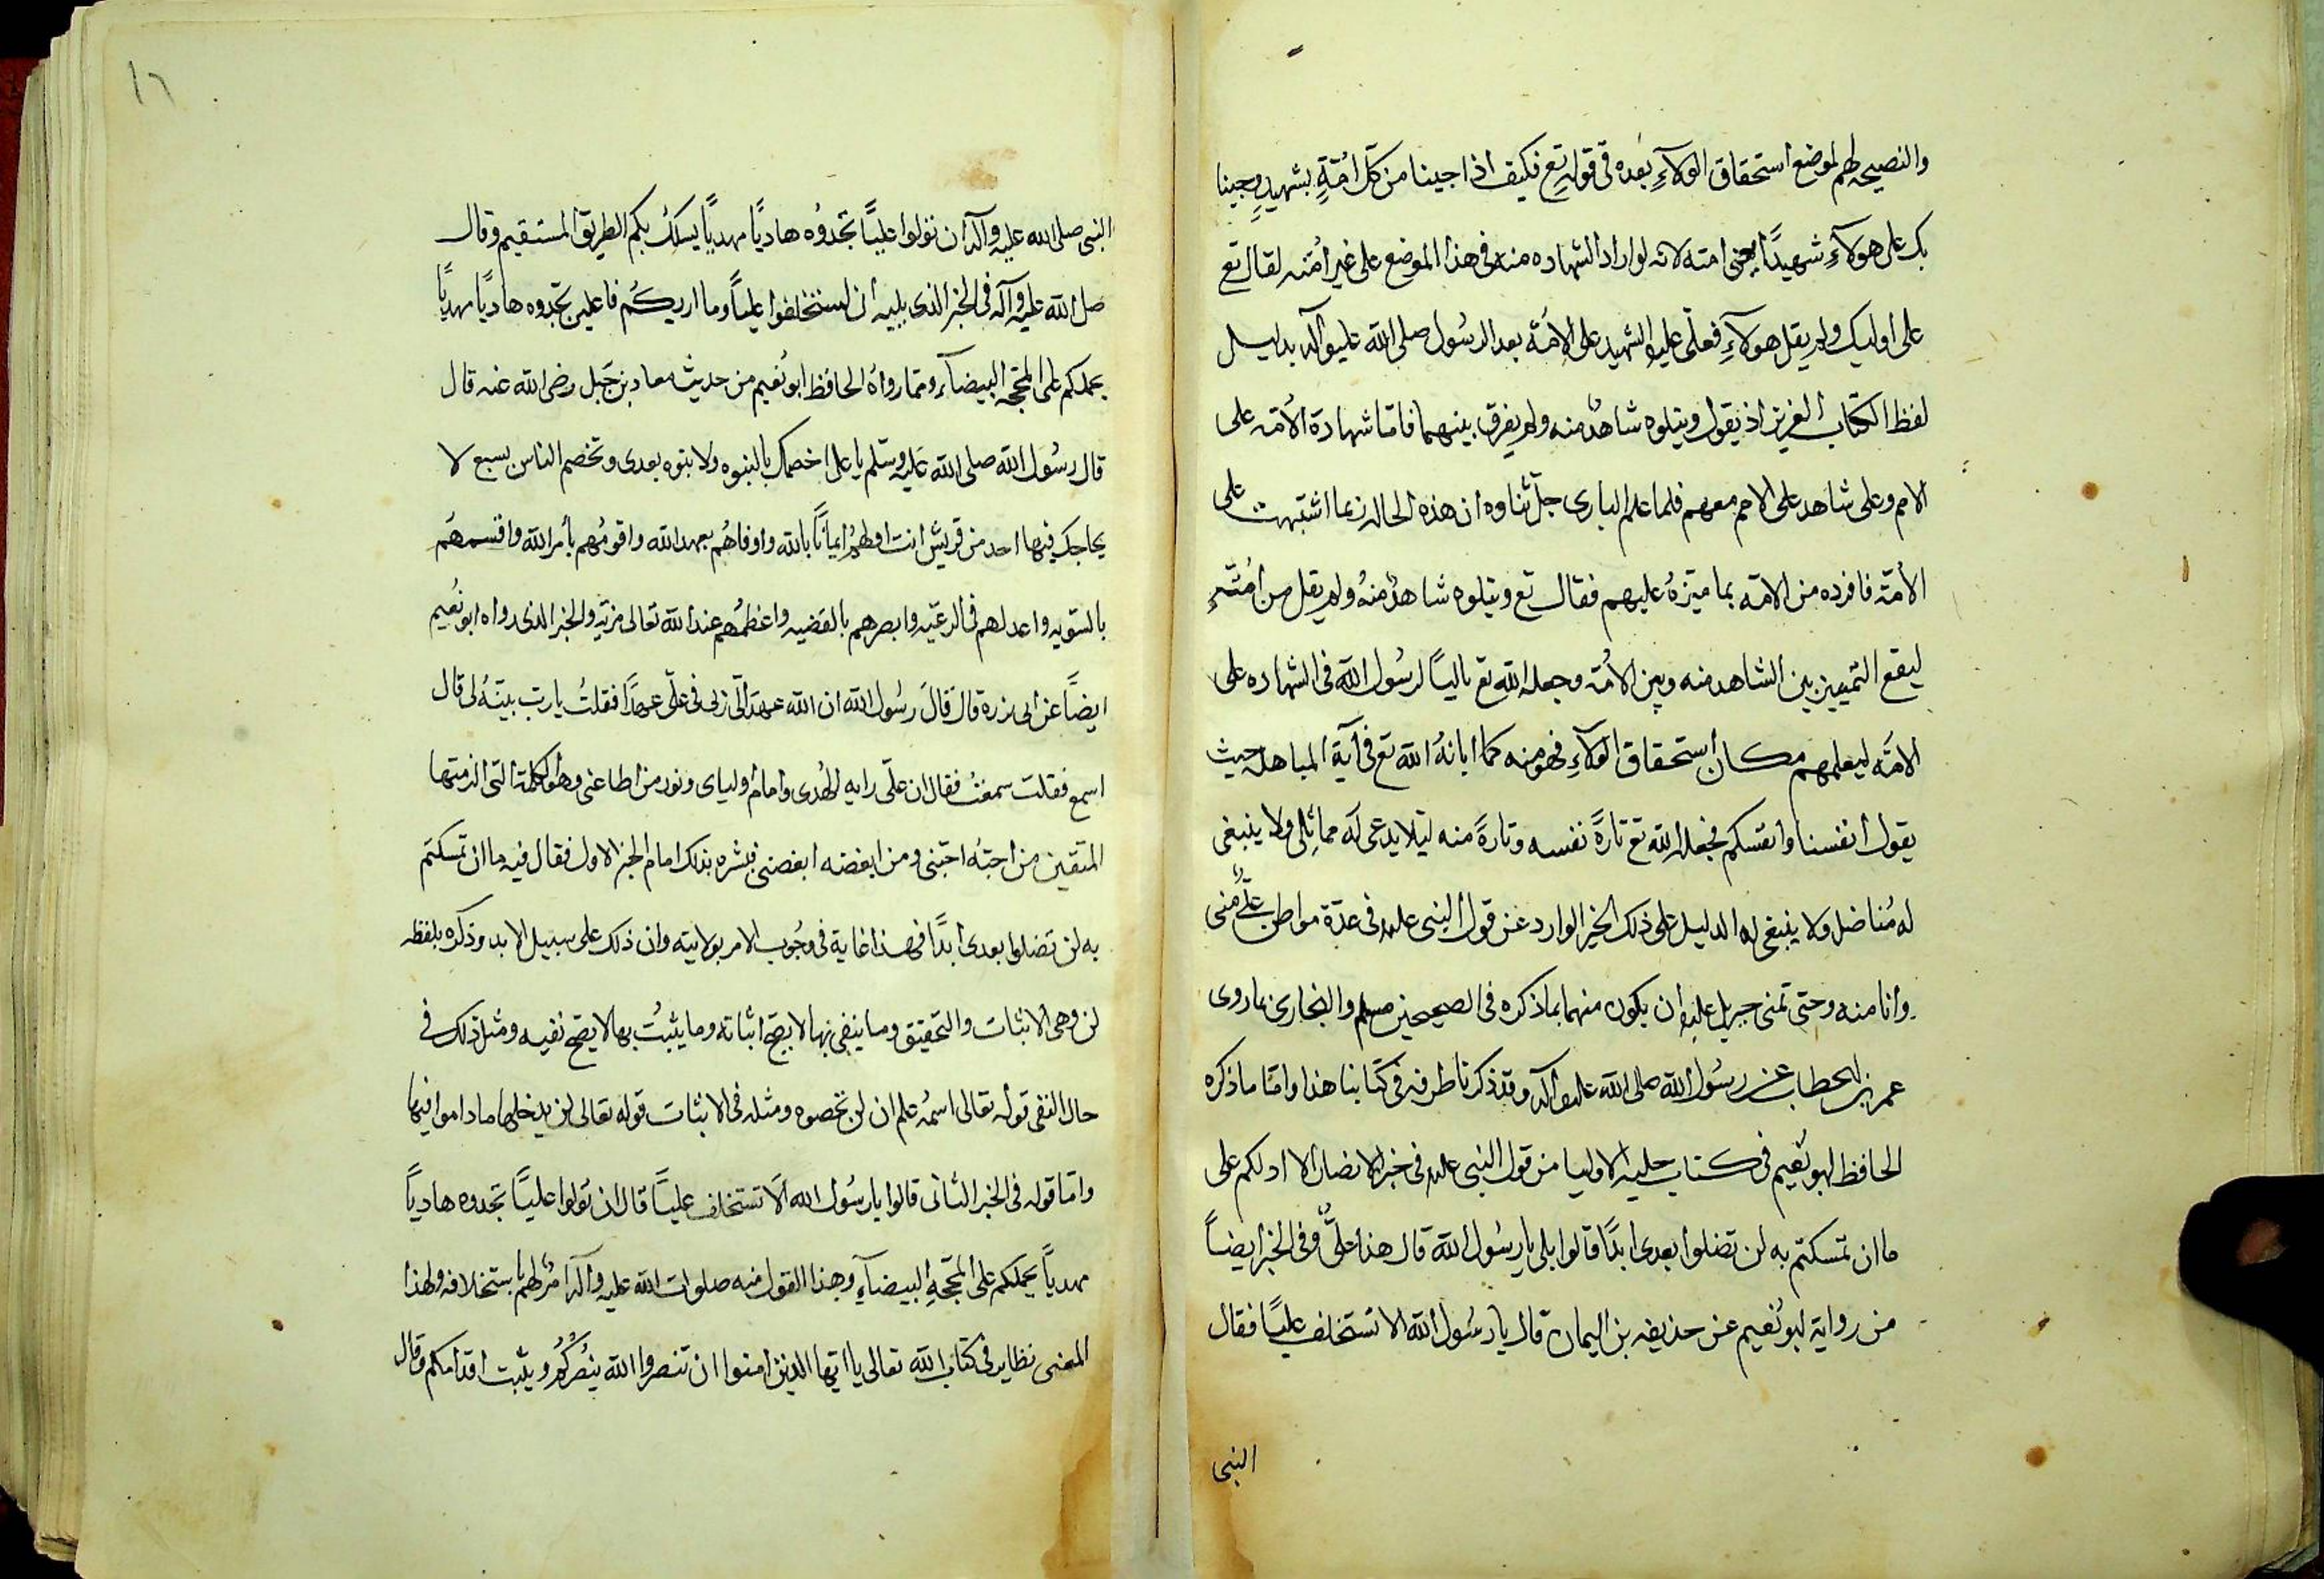 والنصيحه لهم لموضع استحقاق الولآءِ بعده فى قوله تع فكيف اذا جينا من كل امّةٍ بشهيدٍ وجينا
بك على هولآءِ شهيدًا يعنى امته لانه لو اراد الشهاده منه فى هذا الموضع على غير امّته لقال تع
على اوليك ولم يقل هولآءِ فعلىّ عليه الشهيد على الامّة بعد الرسُول صلى الله عليه وآله بدليل
لفظ الكتاب العزيز اذ يقول ويتلوه شاهدٌ منه ولم يفرق بينهما فامّا شهادة الأمّه على
الامم وعلى شاهد على الامم معهم فلما علم البارى جلّ ثناوه ان هذه الحاله ربما اشتبهت على
الأمّة فافرده من الامّه بما ميّزهُ عليهم فقال تع ويتلوه شاهدٌ منهُ ولم يقل من امّته
ليقع التمييز بين الشاهد منه وبين الامُّة وجعله الله تع تاليًا لرسُول الله فى الشهاده على
الامّه ليعلمهم مكان استحقاق الولآءِ فهو منه كما ابانهُ الله تع فى آية المباهله حيث
يقول انفسنا وانفسكم فجعله الله تع تارةً نفسه وتارةً منه ليلا يدعى له مماثِل ولا ينبغى
له مُناضل ولا ينبغى له الدليل على ذلك الخبر الوارد عن قول النبى علم فى عدّة مواطن علىٌّ منى
وانا منه وحتى تمنى جبريل عليه ان يكون منهما بما ذكره فى الصحيحين مسلم والبخارى بما روى
عمر بن الخطاب عن رسُول الله صلى الله عليه وآله وقد ذكرنا طرفه فى كتابنا هذا وامّا ما ذكره
الحافظ ابو نُعيم فى كتاب حلية الاوليا من قول النبى علم فى خبر الانصار الا ادلكم على
ما ان تمسكتم به لن تضلوا بعدى ابدًا قالوا بلى يا رسُول الله قال هذا علىٌّ وفى الخبر ايضاً
من رواية ابو نُعيم عن حذيفه بن اليمان قال يا رسُول الله الا تستخلف عليًا فقال
النبى
١٦
النبى صلى الله عليه وآله ان تولوا عليًّا تجدوُه هاديًا مهديًا يسلكُ بكم الطريق المستقيم وقال
صلى الله عليه وآله فى الخبر الذى يليه ان تستخلفوا عليًاً وما اريكُم فاعلين تجدوه هاديًا مهديًا
يحملكم على المحجّه البيضآء ومما رواهُ الحافظ ابو نُعيم من حديث معاد بن جَبل رضى الله عنه قال
قال رسُول الله صلى الله عليه وسَلّم يا على اخصمك بالنبوه ولا نبوه بعدى وتخصم الناس بسبع لا
يحاجك فيها احد من قريش انت اولهُم ايمانًا بالله واوفاهُم بعهد الله واقومُهم بأمر الله واقسمهُم
بالسّويه واعدلهم فى الرعيّه وابصرهم بالقضيه واعظمُهم عند الله تعالى مزيّة والخبر الذى رواه ابو نُعيم
ايضًا عن ابى بزره قال قالَ رسُول الله ان الله عهد الىّ ربى فى علىّ عهدًا فقلتُ يا ربّ بيّنهُ لى قال
اسمع فقلت سمعتُ فقال ان علىّ رايه الهُدى وامام اوليآى ونور من اطاعنى وهو الكلمة التى الزمتها
المتقين من احبّهُ احبّنى ومن ابغضه ابغضنى فبشره بذلك امام الخبر الاول فقال فيه ما ان تمسكتم
به لن تضلوا بعدى ابدًا فهذا غاية فى وجُوب الامر بولايته وان ذلك على سبيل الابد وذكره بلفظه
لن وهى الاثبات والتحقيق وما ينفى بها لا يصحّ اثباته وما يثبُت بها لا يصحّ نفيه ومثل ذلك فى
حال النفى قوله تعالى اسمُه علم ان لن تحصوه ومثله فى الاثبات قوله تعالى لن يدخلها ما داموا فيها
وامّا قوله فى الخبر الثانى قالوا يا رسُول الله الَا تستخلف عليًاً قال ان تولوا عليًاً تجدوه هادياً
مهدياً يحملكم على المحجّهِ البيضآءِ وهذا القول منه صلوات الله عليه وآله امرٌ لهم باستخلافه ولهذا
المعنى نظاير فى كتاب الله تعالى يا ايّها الذين امنوا ان تنصروا الله ينُصركُم ويثبت اقدامكم وقال